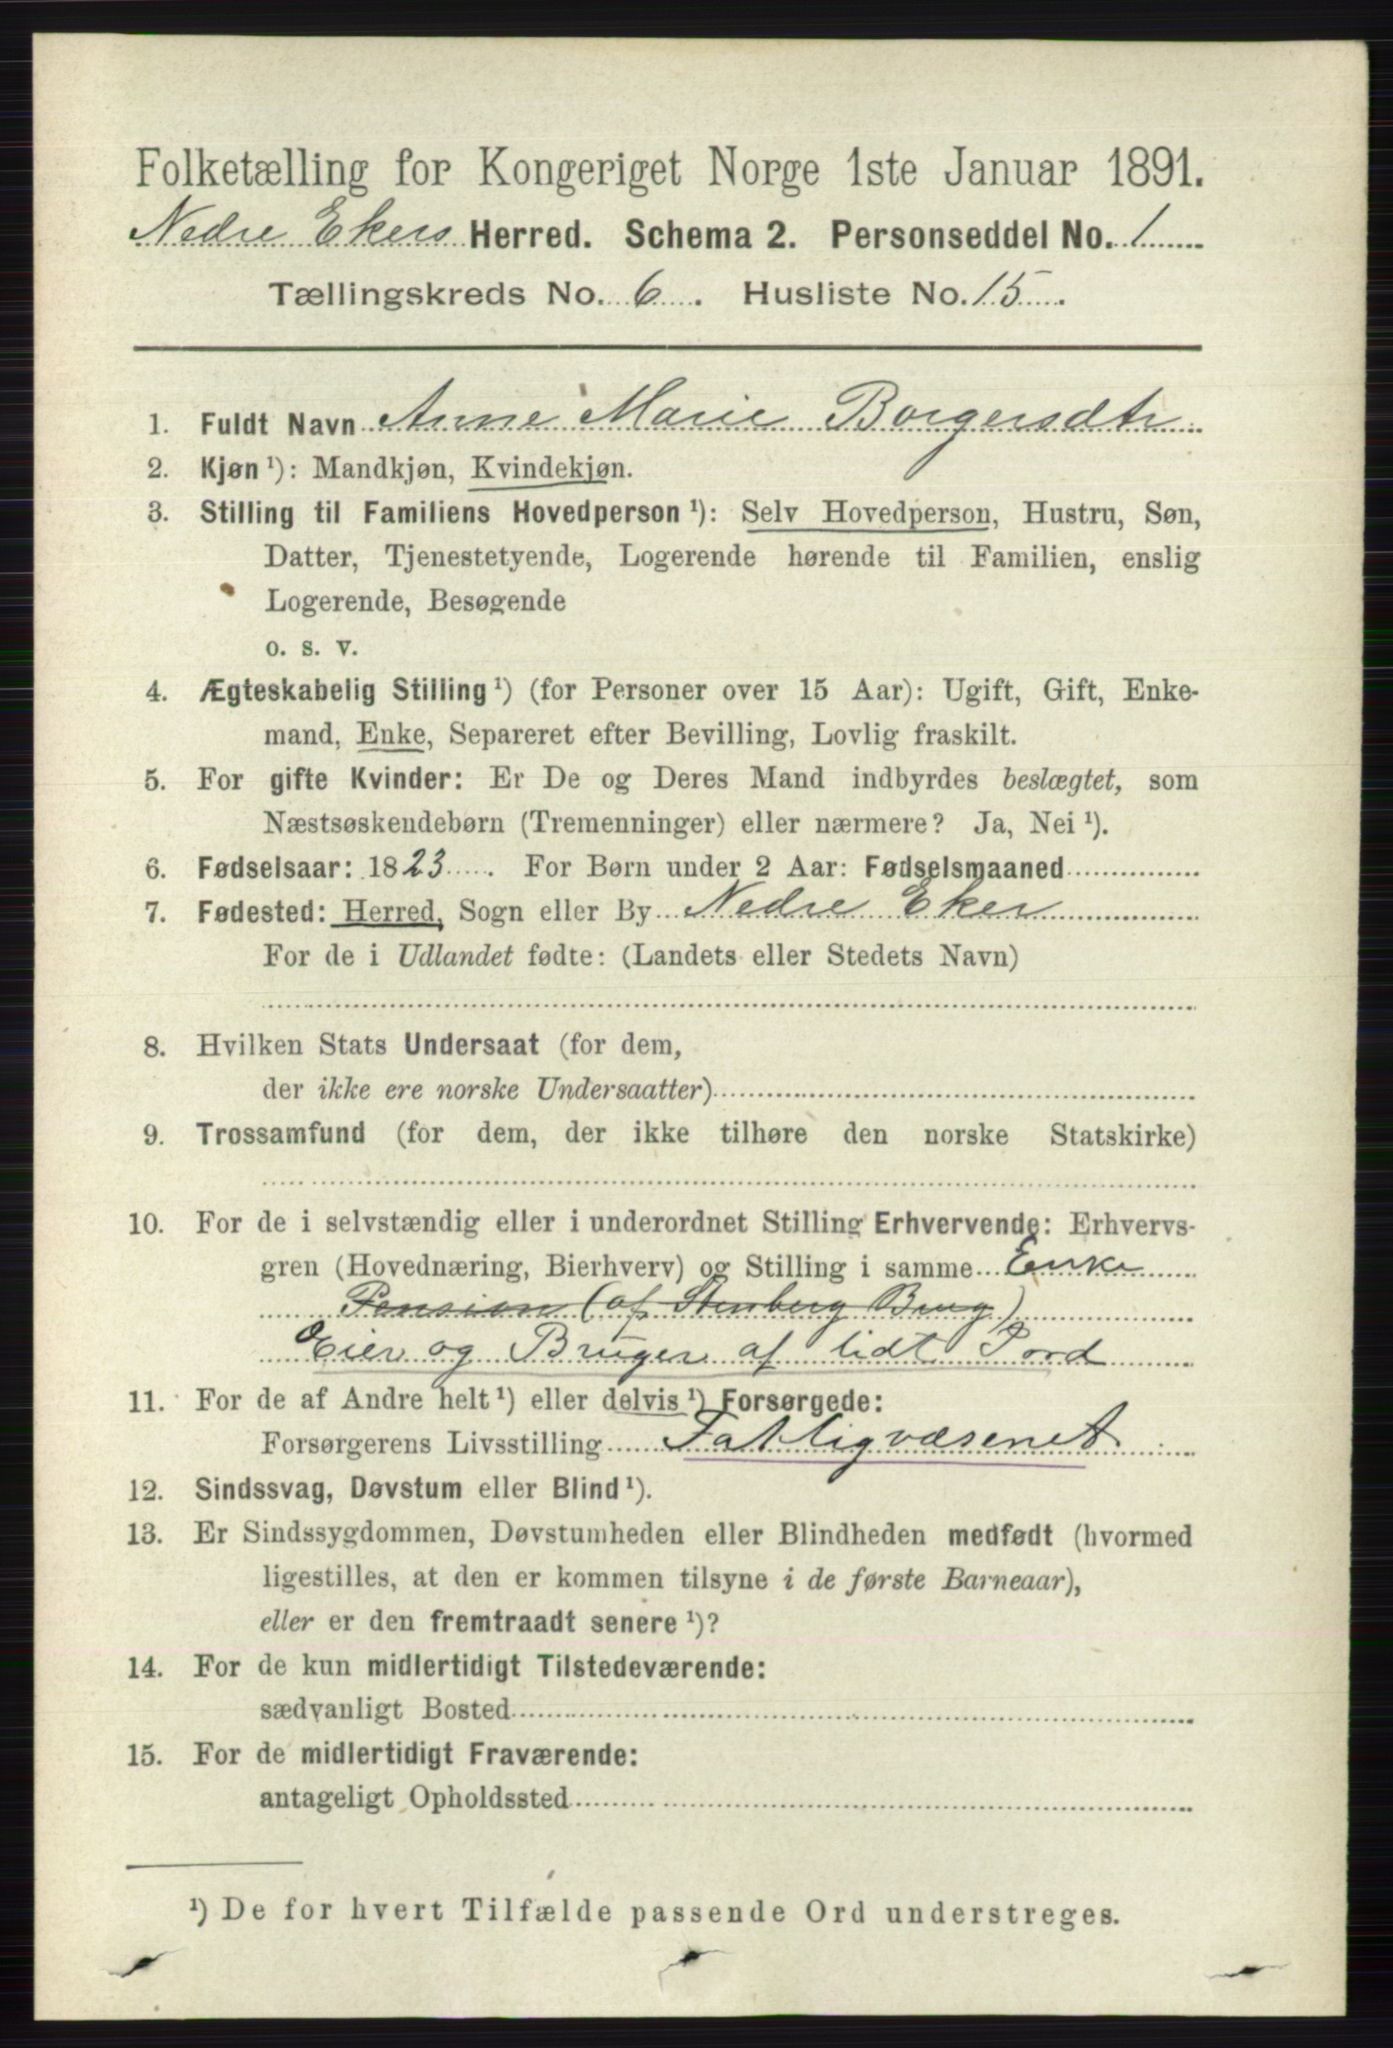 Folketælling for Kongeriget Norge 1ste Januar 1891.
Nedre Ekers Herred. Schema 2. Personseddel No. 1
Tællingskreds No. 6. Husliste No. 15.
1. Fuldt Navn Anne Marie Borgersdtr
2. Kjøn ¹): Mandkjøn, Kvindekjøn.
3. Stilling til Familiens Hovedperson ¹): Selv Hovedperson, Hustru, Søn,
Datter, Tjenestetyende, Logerende hørende til Familien, enslig
Logerende, Besøgende
o. s. v.
4. Ægteskabelig Stilling ¹) (for Personer over 15 Aar): Ugift, Gift, Enke-
mand, Enke, Separeret efter Bevilling, Lovlig fraskilt.
5. For gifte Kvinder: Er De og Deres Mand indbyrdes beslægtet, som
Næstsøskendebørn (Tremenninger) eller nærmere? Ja, Nei ¹).
6. Fødselsaar: 1823. For Børn under 2 Aar: Fødselsmaaned
7. Fødested: Herred, Sogn eller By Nedre Eker
For de i Udlandet fødte: (Landets eller Stedets Navn)
8. Hvilken Stats Undersaat (for dem,
der ikke ere norske Undersaatter)
9. Trossamfund (for dem, der ikke tilhøre den norske Statskirke)
10. For de i selvstændig eller i underordnet Stilling Erhvervende: Erhvervs-
gren (Hovednæring, Bierhverv) og Stilling i samme Enke
Pension (af Stenberg Brug)
Eier og Bruger af lidt Jord
11. For de af Andre helt ¹) eller delvis ¹) Forsørgede:
Forsørgerens Livsstilling Fattigvæsenet
12. Sindssvag, Døvstum eller Blind ¹).
13. Er Sindssygdommen, Døvstumheden eller Blindheden medfødt (hvormed
ligestilles, at den er kommen tilsyne i de første Barneaar),
eller er den fremtraadt senere ¹)?
14. For de kun midlertidigt Tilstedeværende:
sædvanligt Bosted
15. For de midlertidigt Fraværende:
antageligt Opholdssted
¹) De for hvert Tilfælde passende Ord understreges.